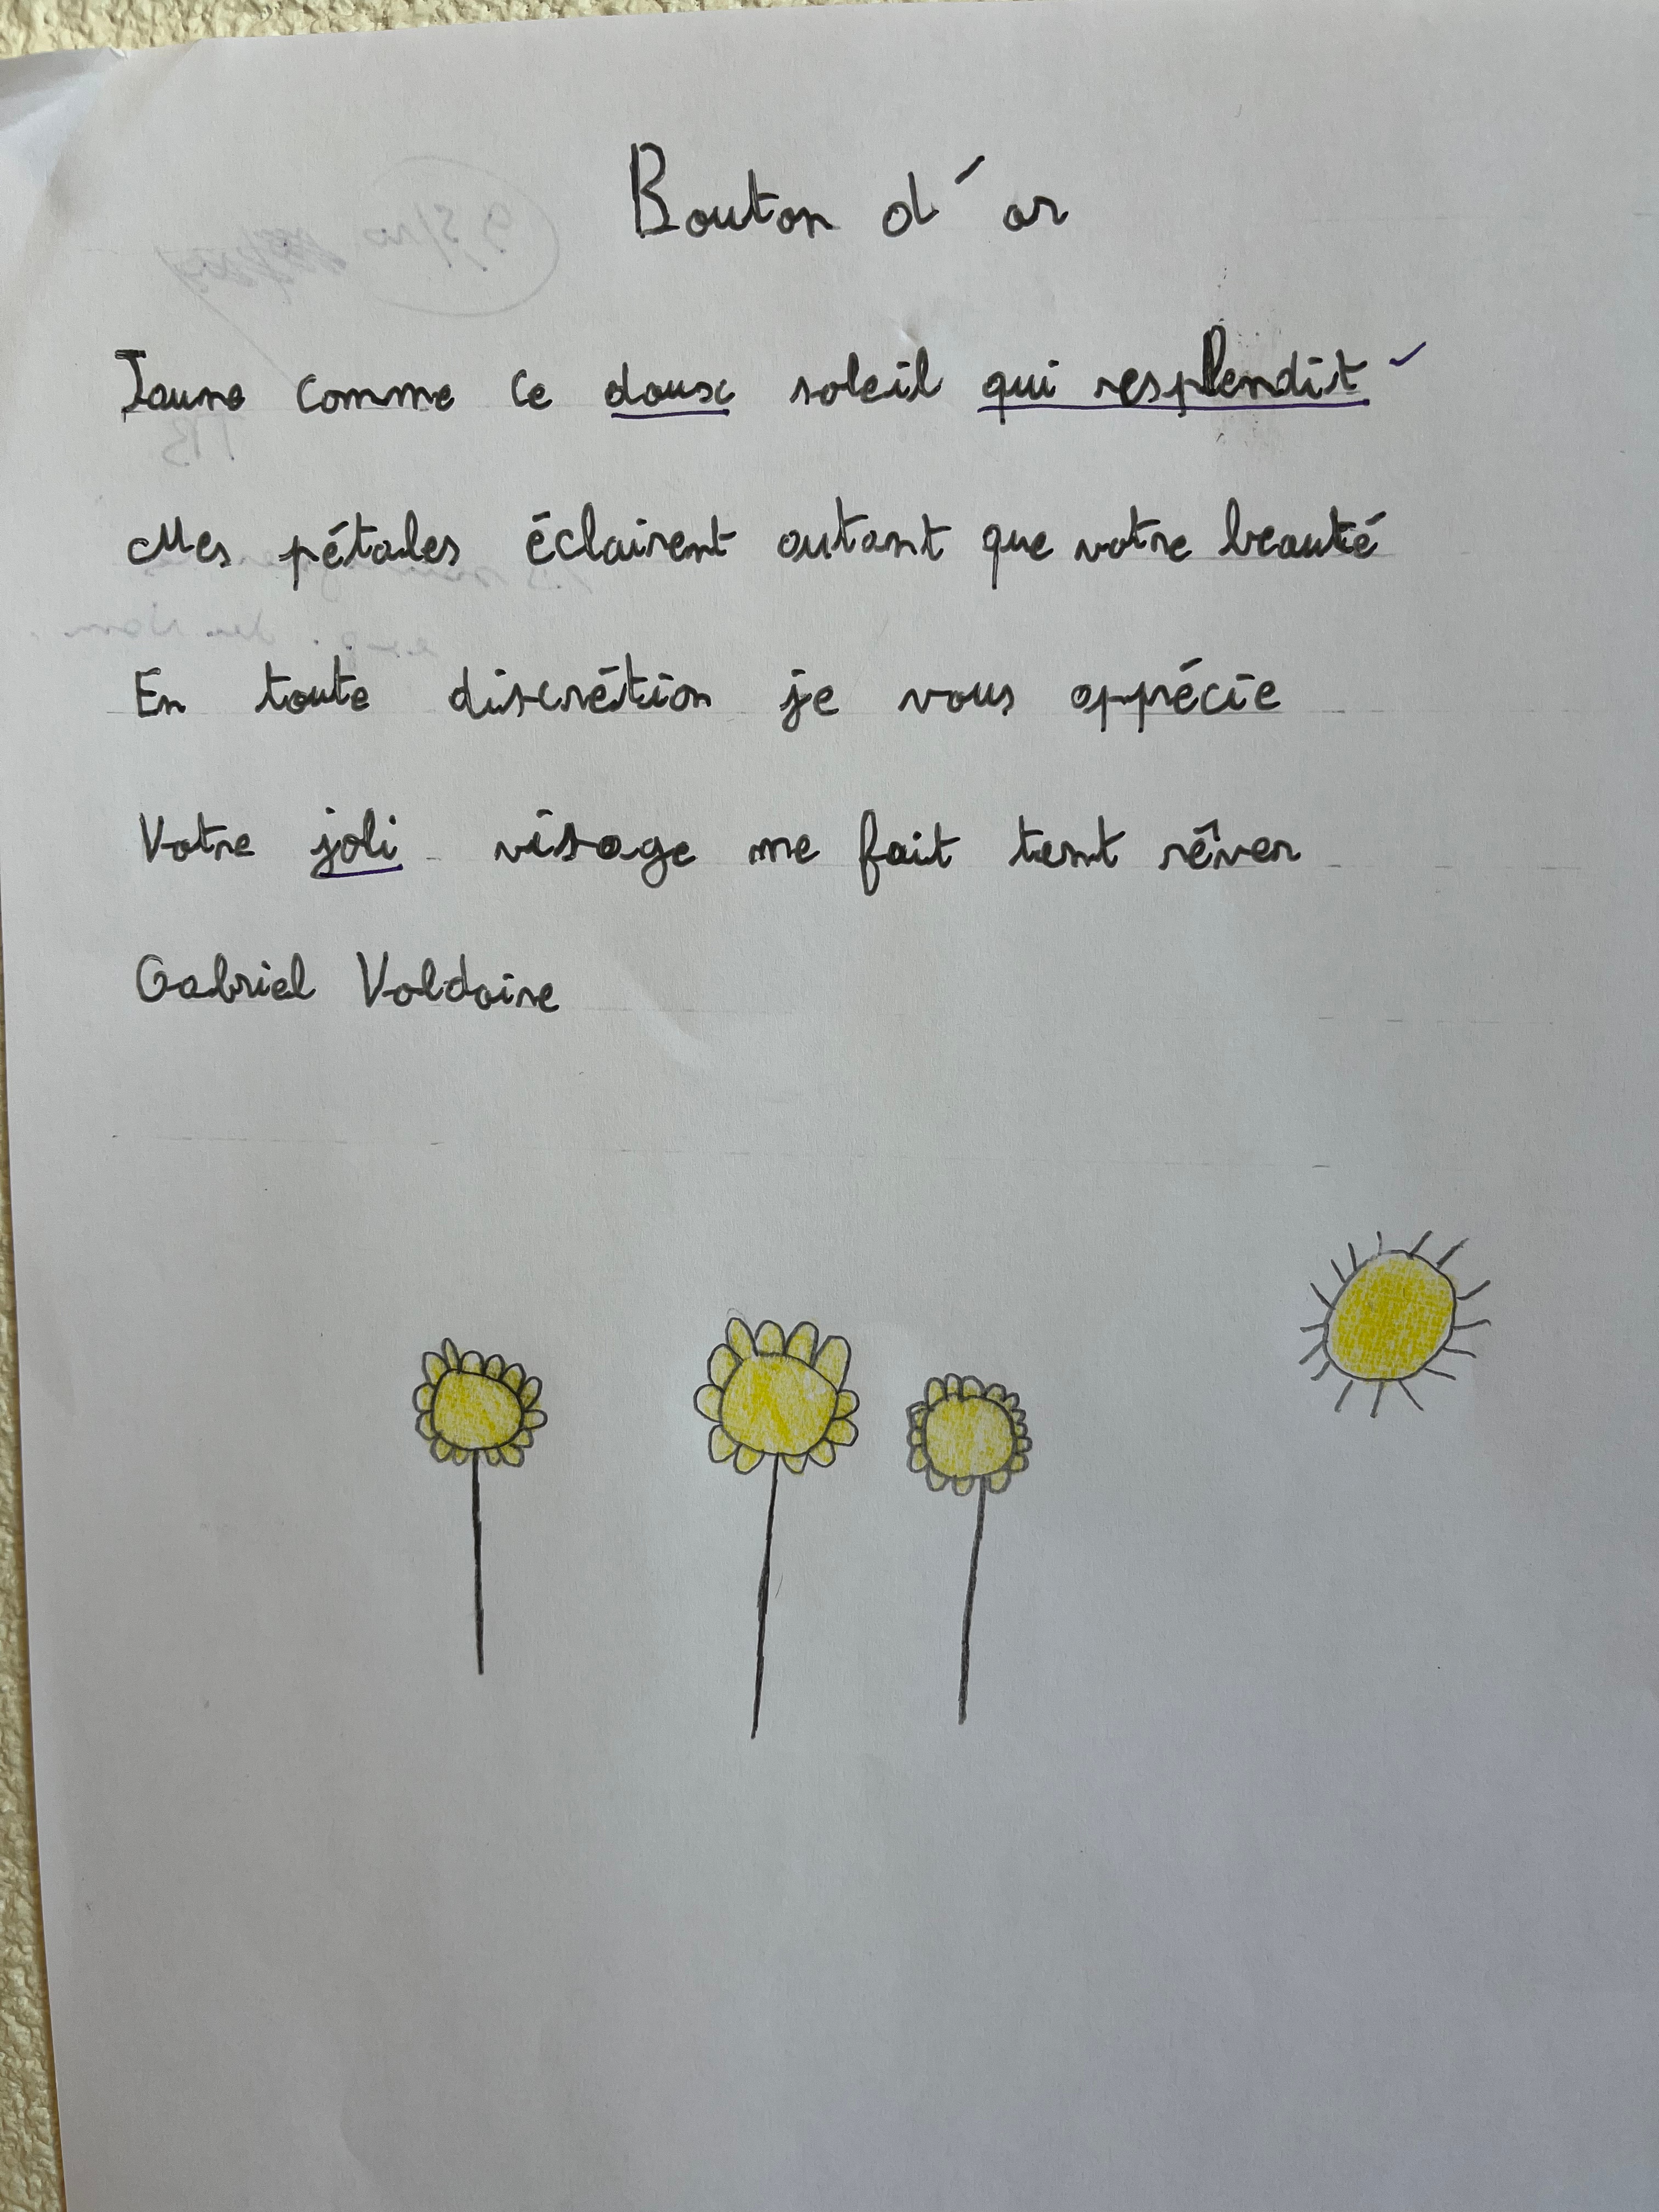 Bouton d'or
Jaune comme ce doux soleil qui resplendit
Mes pétales éclairent autant que votre beauté
En toute discrétion je vous apprécie
Votre joli visage me fait tant rêver
Gabriel Voldoire